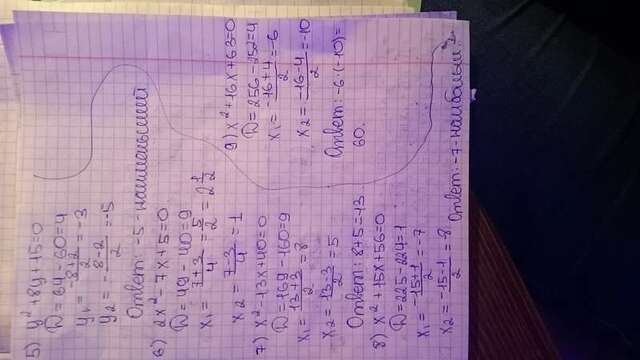 5) y² + 8y + 15 = 0
D = 64 - 60 = 4
y₁ = (-8+2)/2 = -3
y₂ = -(8-2)/2 = -5
Ответ: -5 - наименьший
6) 2x² - 7x + 5 = 0
D = 49 - 40 = 9
x₁ = (7+3)/4 = 5/2 = 2 1/2
x₂ = (7-3)/4 = 1
7) x² - 13x + 40 = 0
D = 169 - 160 = 9
x₁ = (13+3)/2 = 8
x₂ = (13-3)/2 = 5
Ответ: 8 + 5 = 13
8) x² + 15x + 56 = 0
D = 225 - 224 = 1
x₁ = (-15+1)/2 = -7
x₂ = (-15-1)/2 = -8
Ответ: -7 - наибольш.
9) x² + 16x + 63 = 0
D = 256 - 252 = 4
x₁ = (-16+4)/2 = -6
x₂ = (-16-4)/2 = -10
Ответ: -6·(-10) =
60.